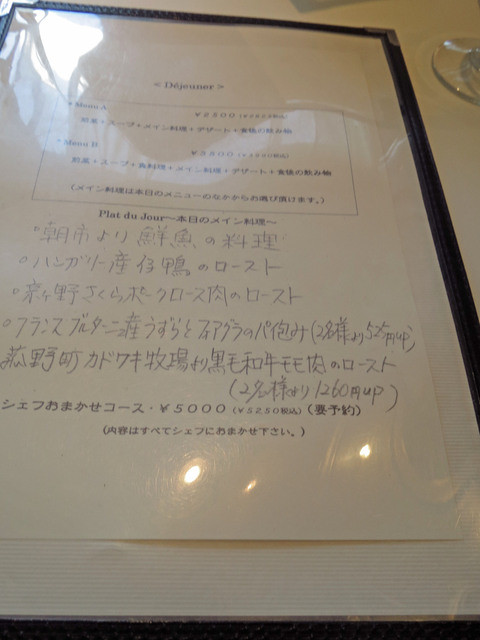 < Déjeuner >
* Menu A
¥2500 (¥2625税込)
前菜+スープ+メイン料理+デザート+食後の飲み物
* Menu B
前菜+スープ+魚料理+メイン料理+デザート+食後の飲み物
(メイン料理は本日のメニューのなかからお選び頂けます。)
Plat du Jour~本日のメイン料理~
○朝市より鮮魚の料理
○ハンガリー産仔鴨のロースト
○茶ヶ野さくらポークロース肉のロースト
○フランスブルターニュ産うずらとフォアグラのパイ包み(2名様より525円up)
菰野町カドワキ牧場より黒毛和牛モモ肉のロースト
(2名様より1260円up)
シェフおまかせコース・¥5000 (¥5250税込) (要予約)
(内容はすべてシェフにおまかせ下さい。)